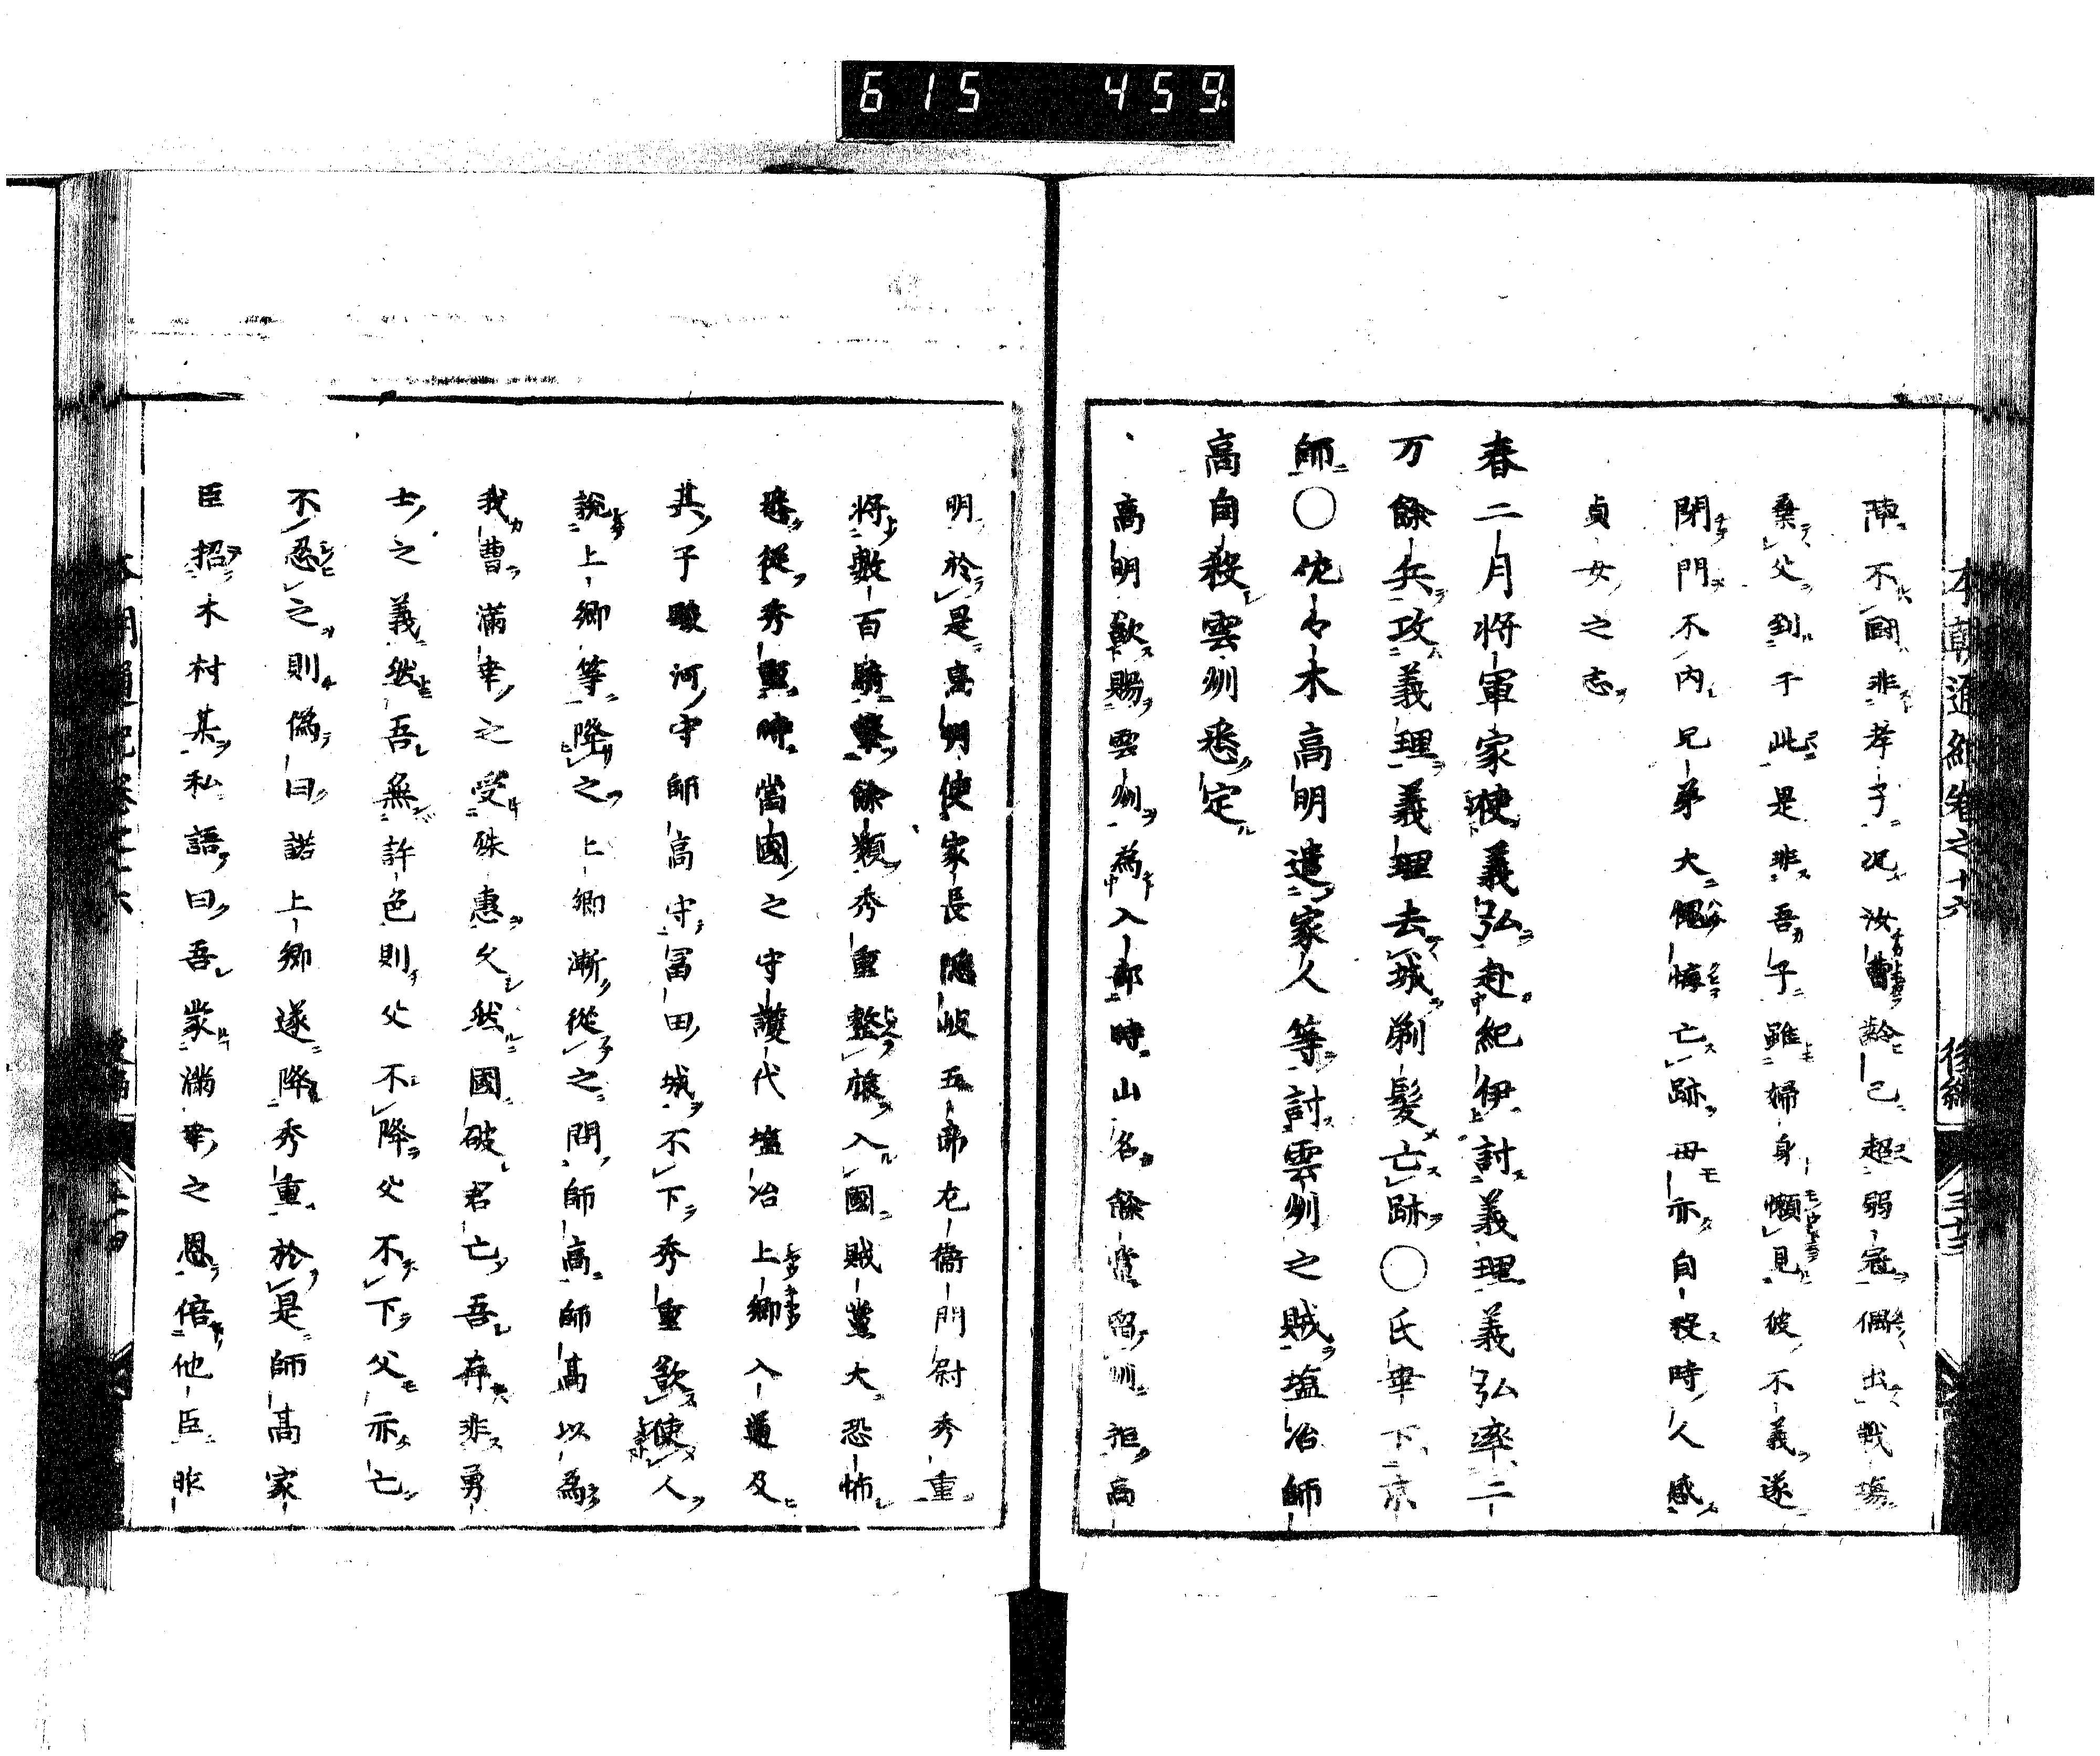 615 459
本朝通紀卷之十六 後編 三十三
陣不鬪非孝子況汝曹齡已超弱冠偶出戰場
棄父到于此是非吾子雖婦身懶見彼不義遂
閉門不內兄弟大愧悔亡跡母亦自殺時人感
貞女之志
春二月將軍家使義弘赴紀伊討義理義弘率二
万餘兵攻義理義理去城剃髮亡跡〇氏事下京
師〇佐々木高明遣家人等討雲州之賊塩冶師
高自殺雲州悉定
高明欲賜雲州為入部時山名餘黨留州拒高
明於是高明使家長隱岐五郎左衞門尉秀重
將數百騎擊餘類秀重整旅入國賊黨大恐怖
悉從秀重時當國之守護代塩冶上鄉入道及
其子駿河守師高守冨田城不下秀重欲使人
說上鄉等降之上鄉漸從之問師高師高以為
我曹滿幸之受殊惠久然國破君亡吾存非勇
士之義然吾無許色則父不降父不下父亦亡
不忍之則偽曰諾上鄉遂降秀重於是師高家
臣招木村某私語曰吾蒙滿幸之恩倍他臣昨